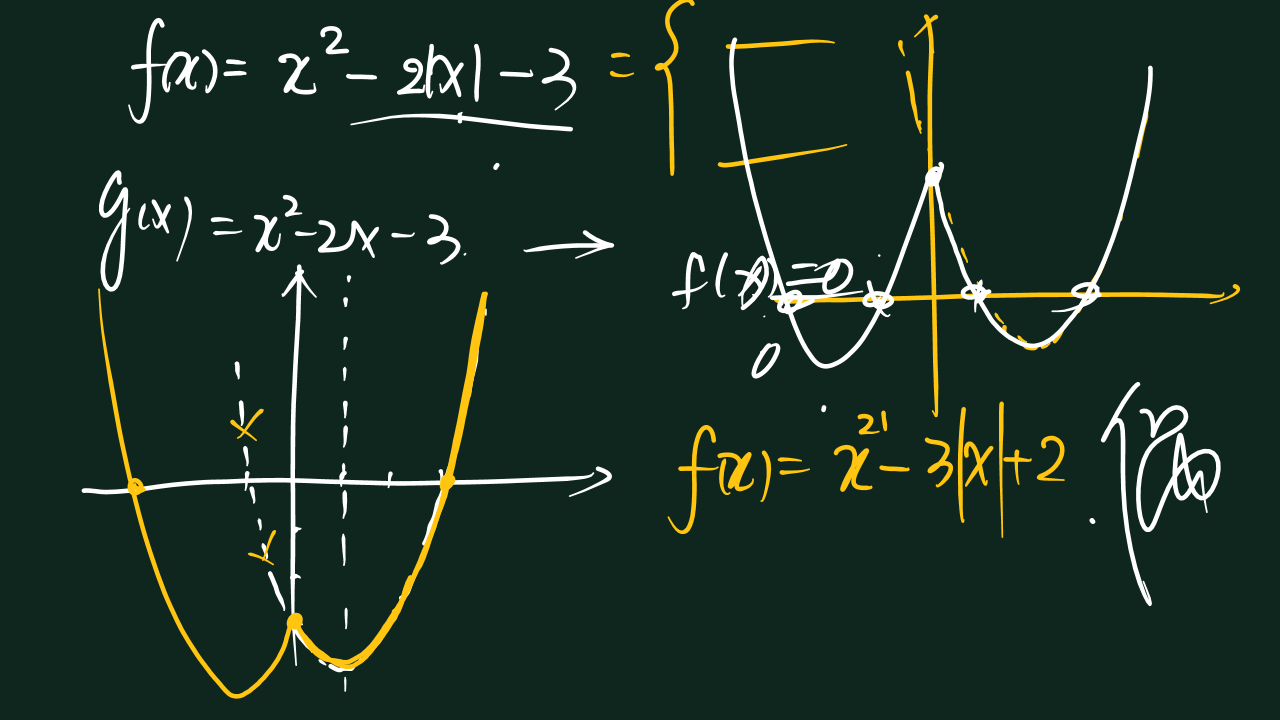 f(x) = x² - 2|x| - 3 = {
g(x) = x² - 2x - 3. →
f(x) = 0
0
f(x) = x² - 3|x| + 2